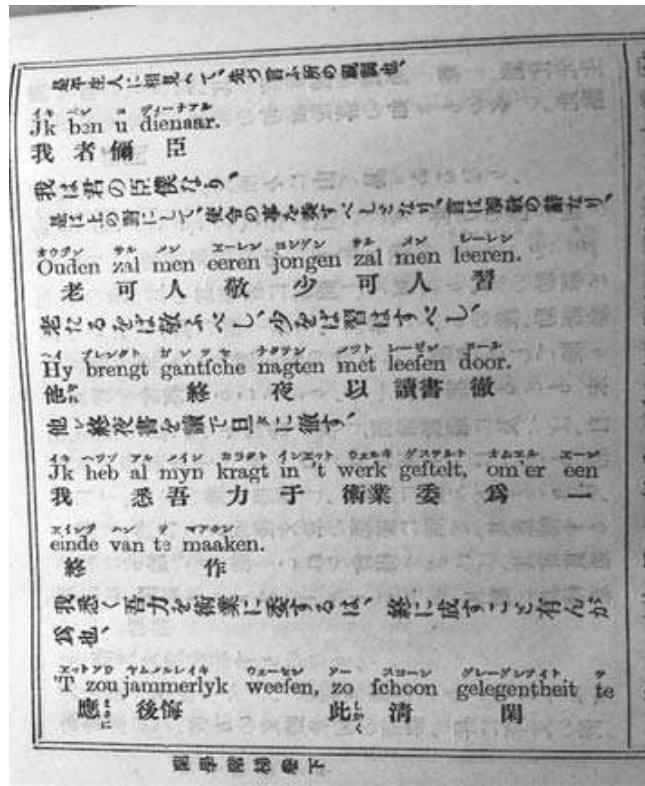 是平生人に相見へて、先づ言ふ所の
イキ ベン ユ ディーナアル
Jk ben u dienaar.
我 者 儞 臣
我は君の臣僕なり、
是は上の詞にして、使命の事を委すべしとなり、言は
オウデン サル メン エーレン ヨンゲン サル メン レーレン
Ouden zal men eeren jongen zal men leeren.
老 可 人 敬 少 可 人 習
老たるをば敬ふべし、少をば習はすべし、
ハイ ブレンクト ガンツセ ナクテン メット レーゼン ドール
Hy brengt gantſche nagten met leeſen door.
他 終 夜 以 讀書 徹
他ハ終夜書を讀で旦に徹す、
イキ ヘップ アル メイン カラクト インエット ウェルキ ゲステルト オムエル エーン
Jk heb al myn kragt in 't werk geſtelt, om'er een
我 悉 吾 力 于 術業 委 爲 一
エインデ ハン テ マアケン
einde van te maaken.
終 作
我悉く吾力を術業に委するは、終に成すこと有んが
爲也、
エットソウ ヤムメルレイキ ウェーセン ソー スコーン グレーゲンデイト テ
'T zou jammerlyk weeſen, zo ſchoon gelegentheit te
應まさに 後悔 此しかく 清 閑
蘭學階梯卷下